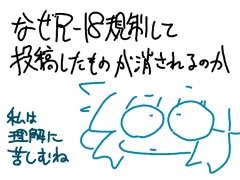 なぜR-18規制して
投稿したものが消されるのか
私は
理解に
苦しむね